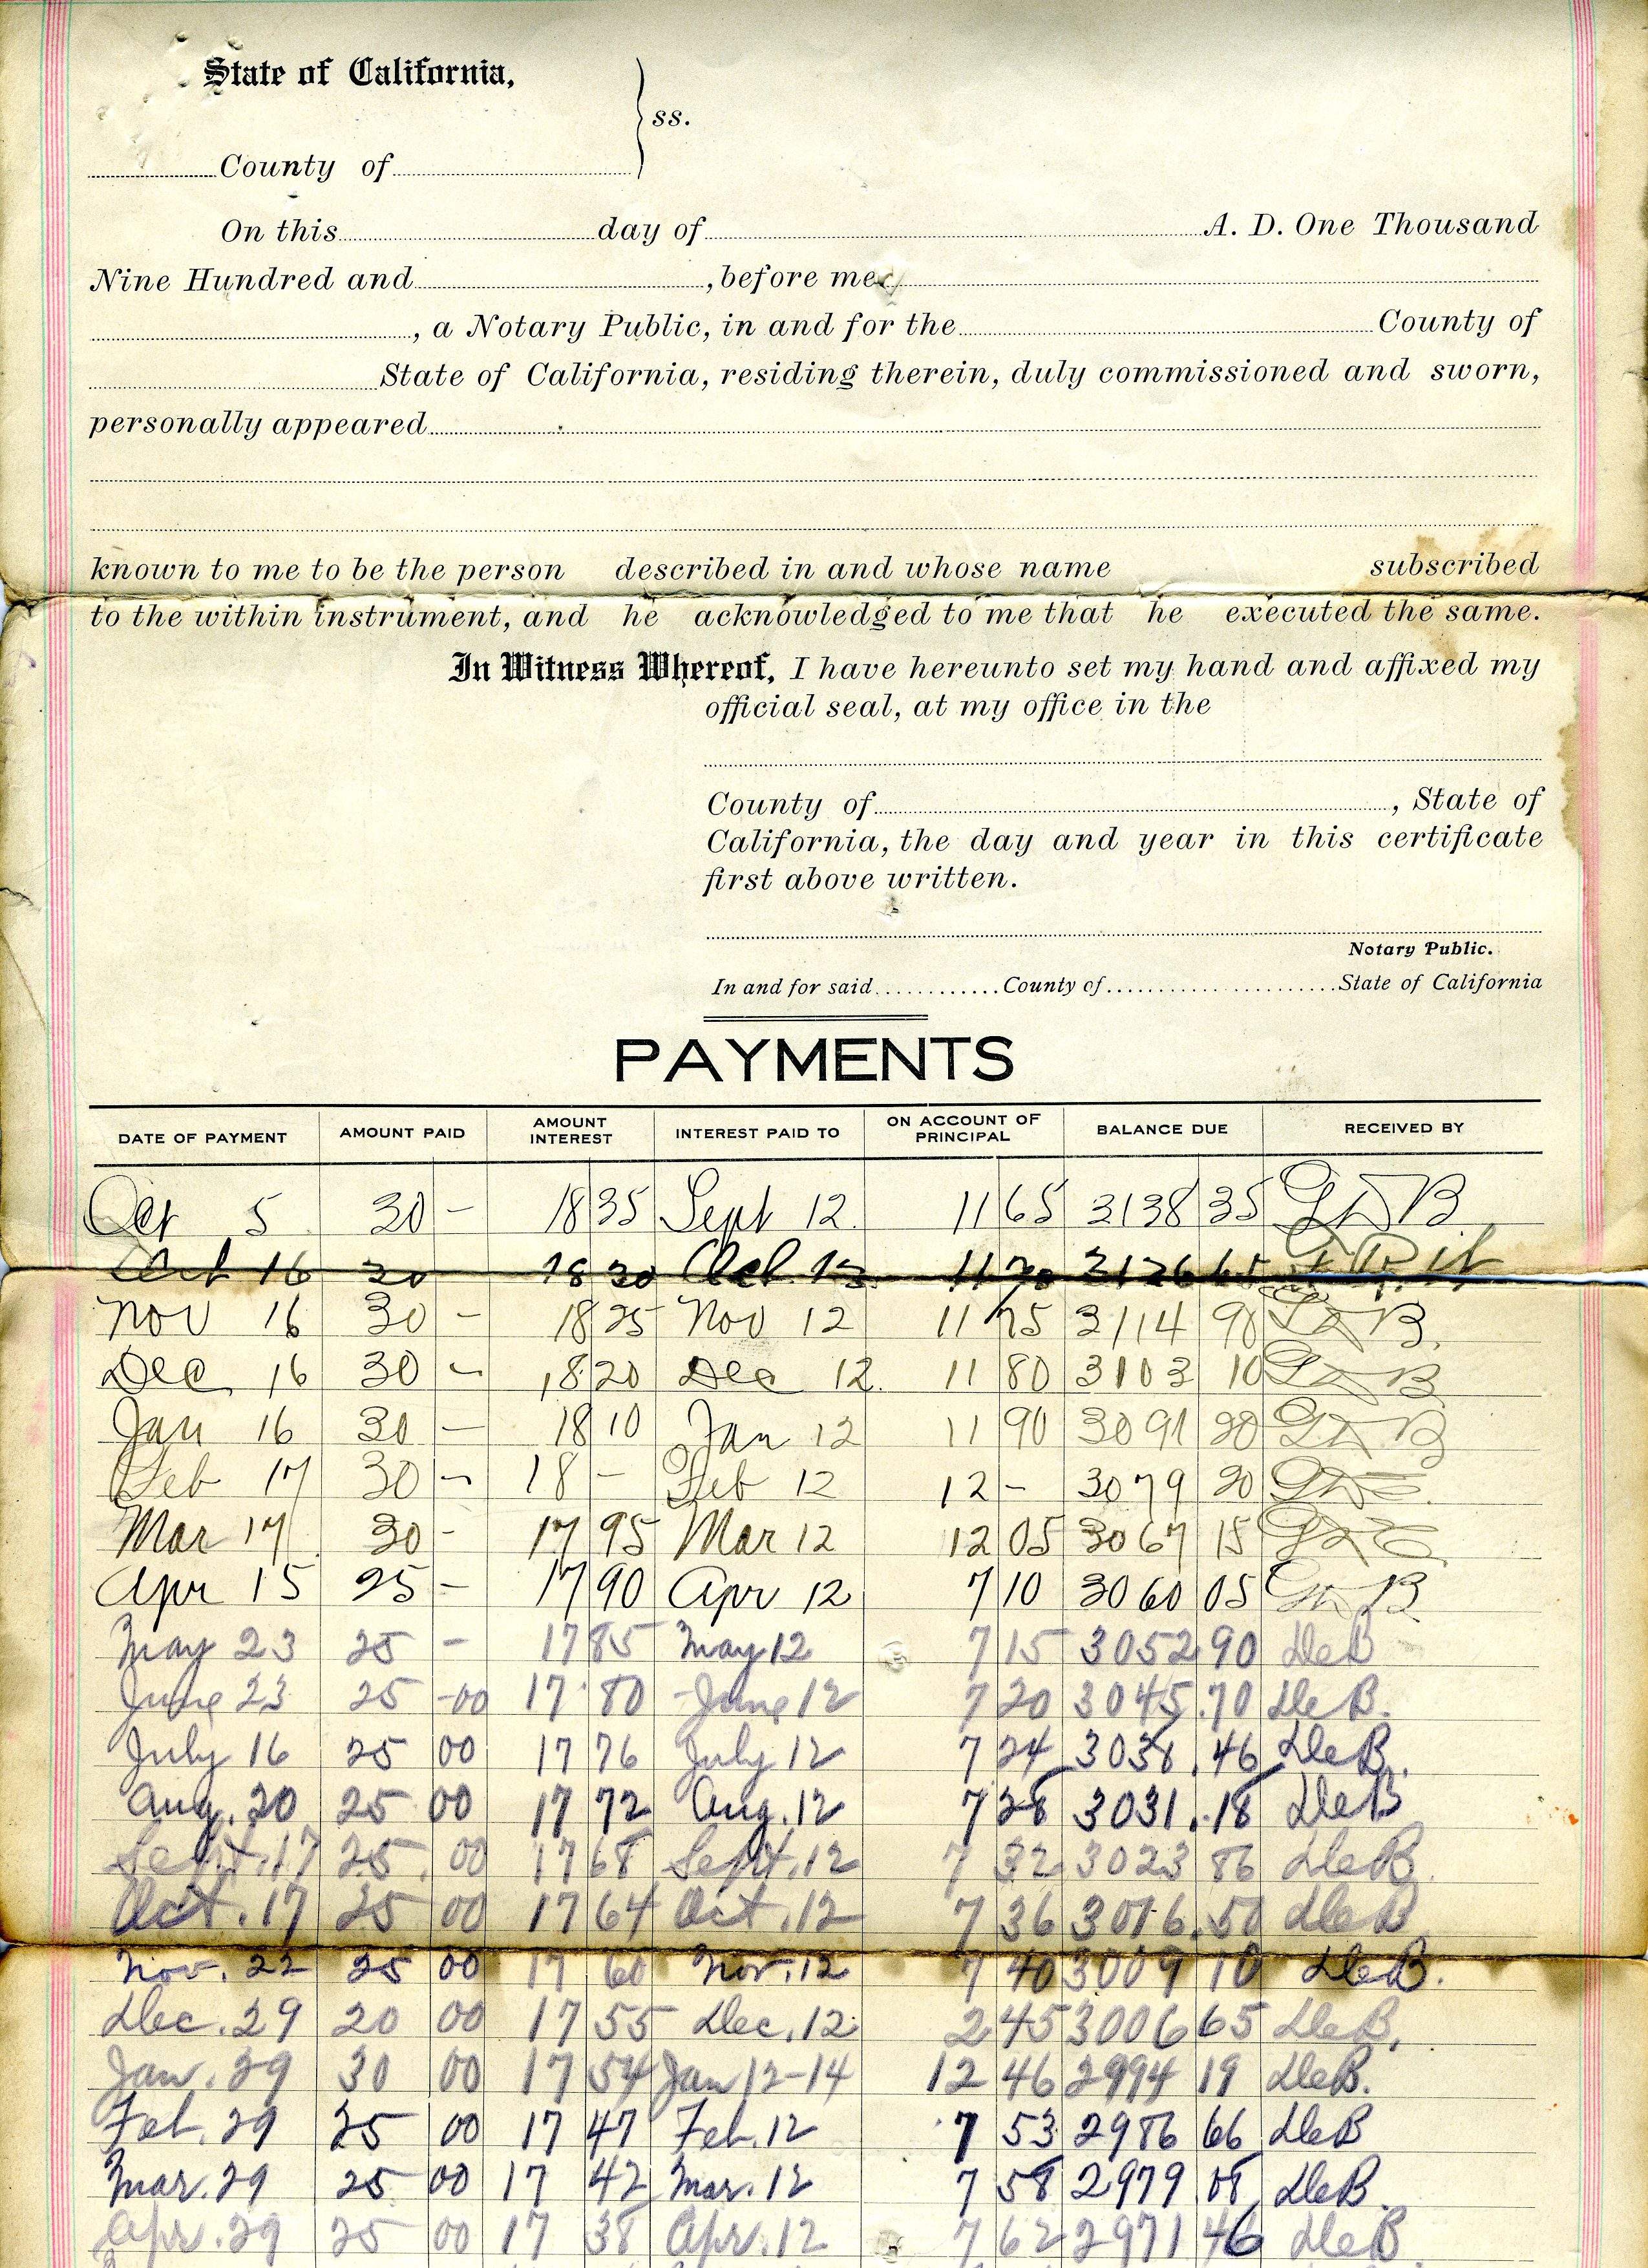 State of California,
ss.
County of
On this day of A. D. One Thousand
Nine Hundred and , before me
, a Notary Public, in and for the County of
State of California, residing therein, duly commissioned and sworn,
personally appeared
known to me to be the person described in and whose name subscribed
to the within instrument, and he acknowledged to me that he executed the same.
In Witness Whereof, I have hereunto set my hand and affixed my
official seal, at my office in the
County of , State of
California, the day and year in this certificate
first above written.
Notary Public.
In and for said County of State of California
PAYMENTS
DATE OF PAYMENT AMOUNT PAID AMOUNT INTEREST INTEREST PAID TO ON ACCOUNT OF PRINCIPAL BALANCE DUE RECEIVED BY
Oct 5 30 - 18 35 Sept 12 11 65 3138 35
Oct 16 30 18 30 Oct. 12 11 70 3126 65
Nov 16 30 - 18 25 Nov 12 11 75 3114 90
Dec 16 30 - 18 20 Dec 12 11 80 3103 10
Jan 16 30 - 18 10 Jan 12 11 90 3091 20
Feb 17 30 - 18 - Feb 12 12 - 3079 20
Mar 17 30 - 17 95 Mar 12 12 05 3067 15
Apr 15 25 - 17 90 Apr 12 7 10 3060 05
May 23 25 - 17 85 May 12 7 15 3052 90 DeB
June 23 25 -00 17 80 June 12 7 20 3045.70 DeB.
July 16 25 00 17 76 July 12 7 24 3038.46 DeB.
Aug. 20 25 00 17 72 Aug. 12 7 28 3031.18 DeB
Sept. 17 25 00 17 68 Sept. 12 7 32 3023 86 DeB.
Oct. 17 25 00 17 64 Oct. 12 7 36 3016.50 DeB
Nov. 22 25 00 17 60 Nov. 12 7 40 3009 10 DeB.
Dec. 29 20 00 17 55 Dec. 12 2 45 3006 65 DeB.
Jan. 29 30 00 17 54 Jan 12-14 12 46 2994 19 DeB.
Feb. 29 25 00 17 47 Feb. 12 7 53 2986 66 DeB
Mar. 29 25 00 17 42 Mar. 12 7 58 2979 08 DeB.
Apr. 29 25 00 17 38 Apr. 12 7 62 2971 46 DeB.